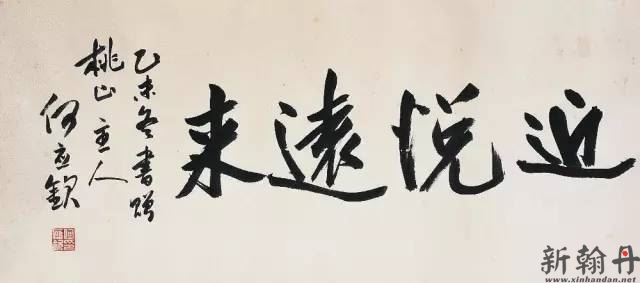 近悦遠来
乙未冬書贈
桃山主人
何应钦
新翰丹
www.xinhandan.net